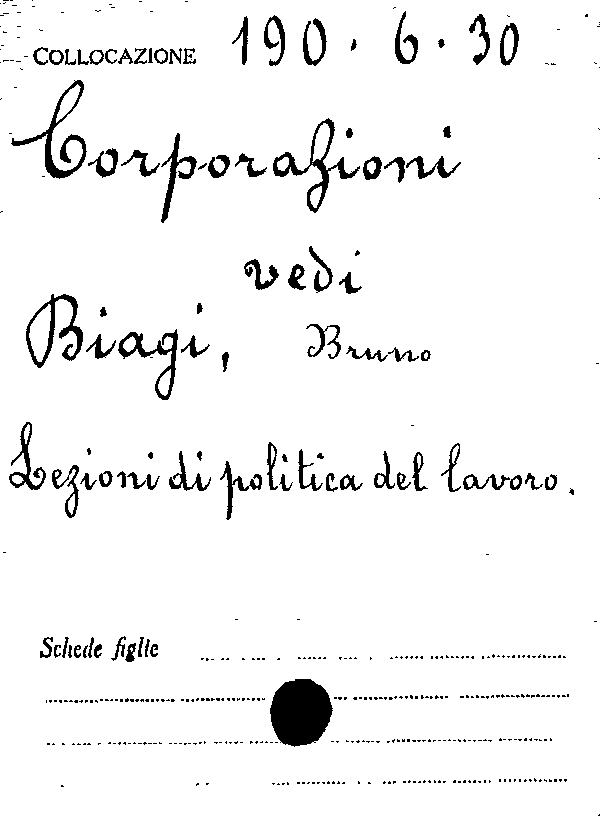 COLLOCAZIONE 190.6.30
Corporazioni
vedi
Biagi, Bruno
Lezioni di politica del lavoro.
Schede figlie